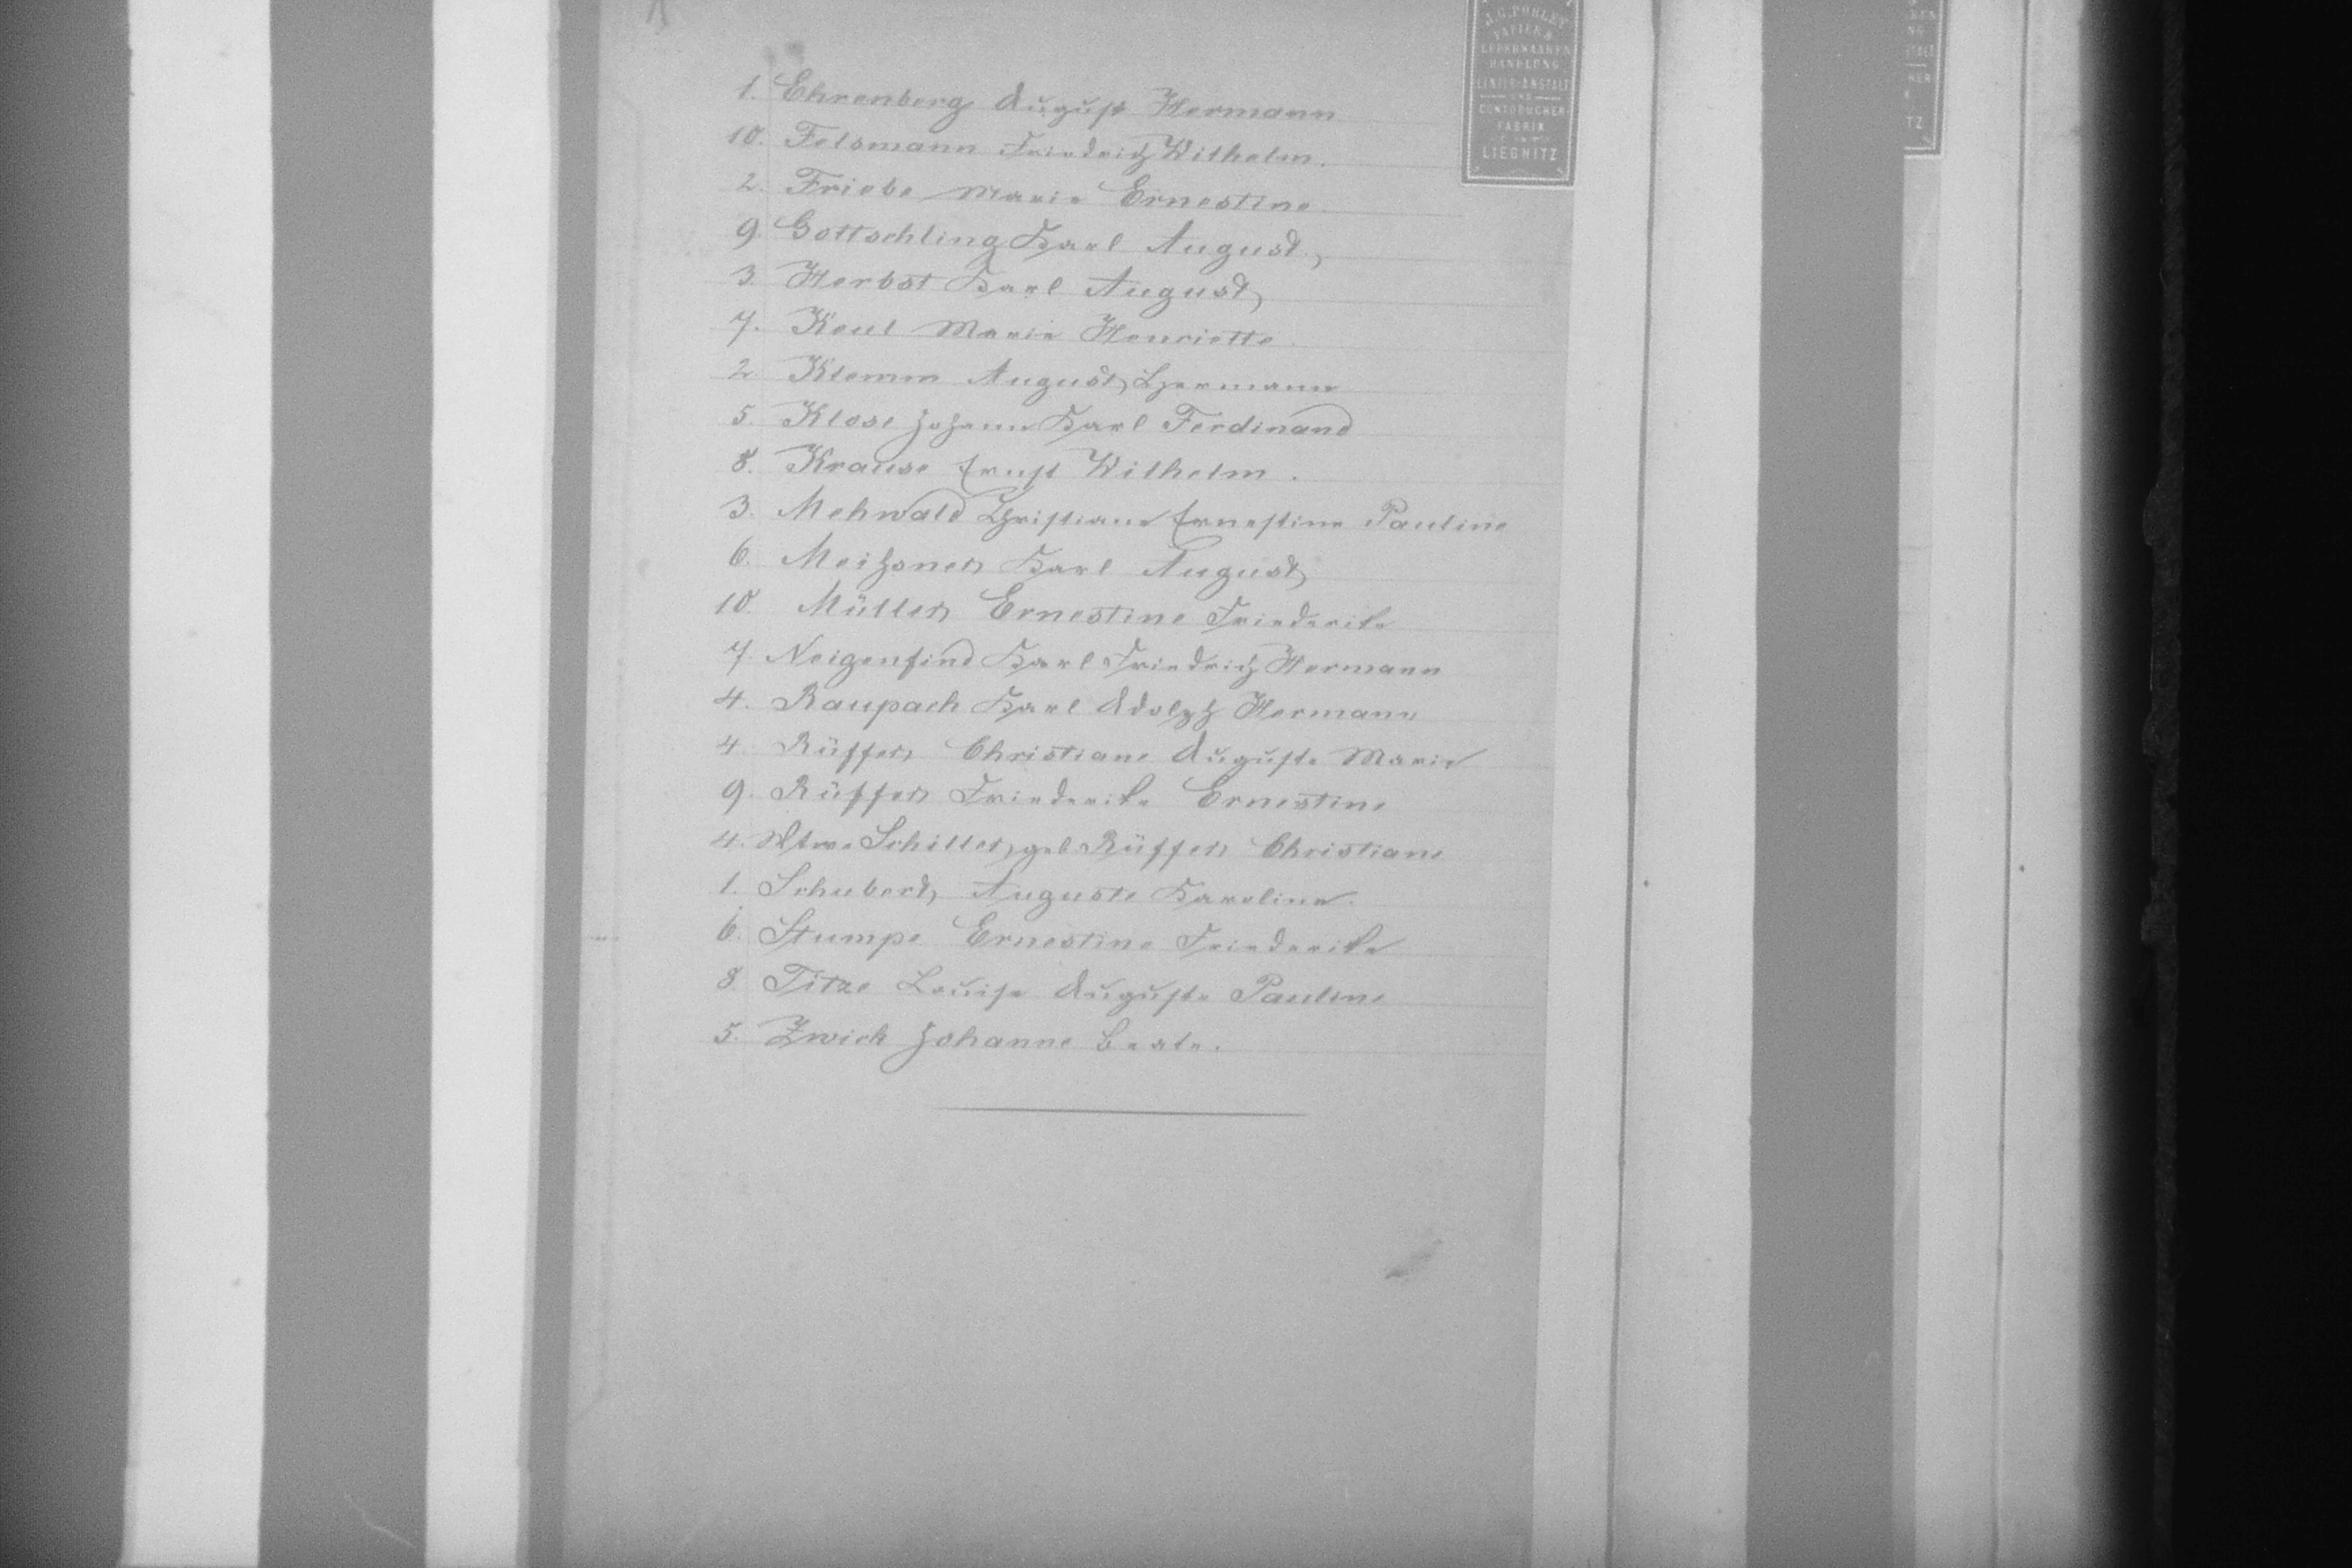 1. Ehrenberg August Hermann
10. Felsmann Friedrich Wilhelm.
2. Friebe Marie Ernestine
9. Gottschling Karl August,
3. Herbst Karl August,
7. Keul Marie Henriette
2. Klemm August, Hermann
5. Klose Johann Karl Ferdinand
8. Krause Ernst Wilhelm.
3. Mehwald Christiane Ernestine Pauline
6. Meißner Karl August
10. Müller, Ernestine Friederike
7. Neigenfind Karl Friedrich Hermann
4. Raupach Karl Adolph Hermann
4. Rüffer, Christiane Auguste Marie
9. Rüffer Friederike Ernestine
4. Wtwe Schiller, geb. Rüffer, Christiane
1. Schubert, Auguste Karoline.
6. Stumpe Ernestine Friederike
8. Titze Louise Auguste Pauline
5. Zwick Johanne Beate.
J. G. POHLEY
PAPIER &
LEDERWAAREN
HANDLUNG
LINIIR-ANSTALT
UND
CONTOBÜCHER
FABRIK
IN
LIEGNITZ